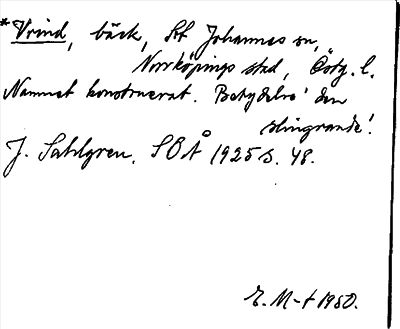 *Vrind, bäck, S:t Johannes sn,
Norrköpings stad, Östg. l.
Namnet konstruerat. Betydelse 'den
slingrande'.
J. Sahlgren, SOÅ 1925 s. 48.
E. M-t 1950.